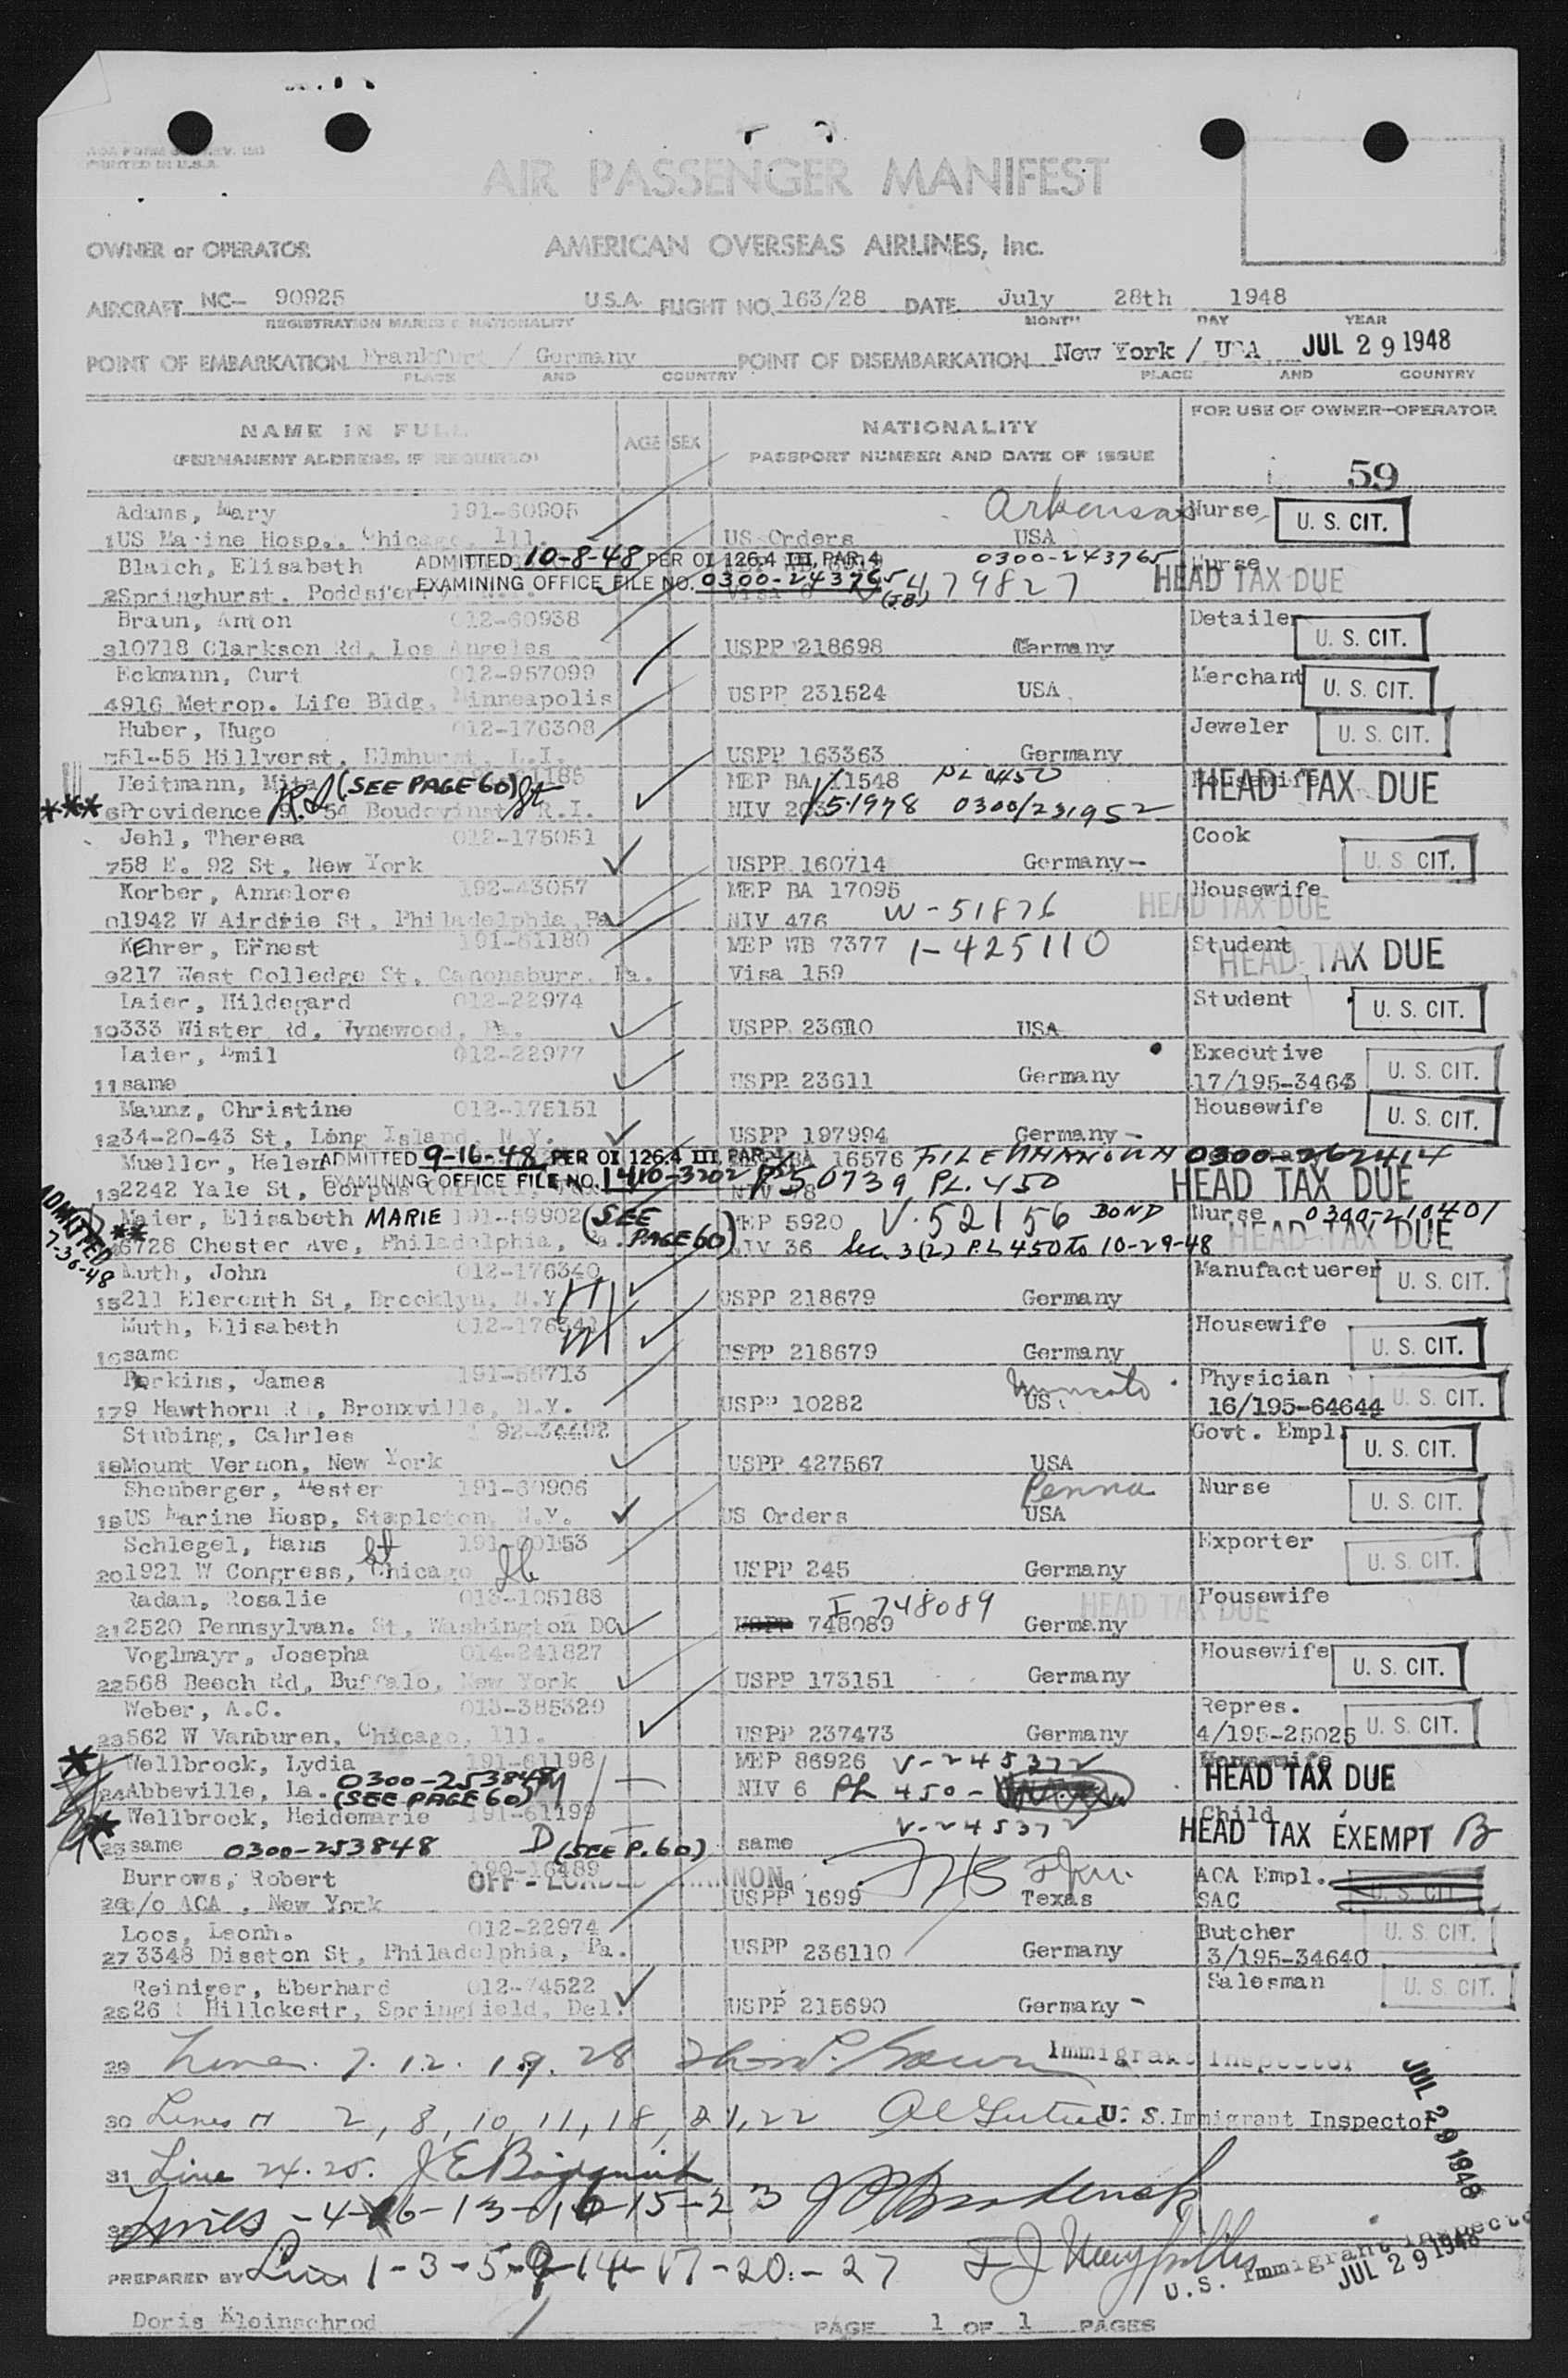 PRINTED IN U.S.A.
AIR PASSENGER MANIFEST
OWNER or OPERATOR AMERICAN OVERSEAS AIRLINES, Inc.
AIRCRAFT NC- 90925 U.S.A. FLIGHT NO. 163/28 DATE July 28th 1948
REGISTRATION MARKS & NATIONALITY MONTH DAY YEAR
POINT OF EMBARKATION Frankfurt / Germany POINT OF DISEMBARKATION New York / USA JUL 29 1948
PLACE AND COUNTRY PLACE AND COUNTRY
NAME IN FULL AGE SEX NATIONALITY FOR USE OF OWNER-OPERATOR
(PERMANENT ADDRESS, IF REQUIRED) PASSPORT NUMBER AND DATE OF ISSUE 59
Adams, Mary 191-60905 Arkansas Nurse U. S. CIT.
1 US Marine Hosp., Chicago, Ill. US Orders USA
Blaich, Elisabeth ADMITTED 10-8-48 PER OI 126.4 III, PAR. 4 0300-243765 Nurse
EXAMINING OFFICE FILE NO. 0300-243765 479827 HEAD TAX DUE
2 Springhurst, Visa
Braun, Anton 012-60938 Detailer U. S. CIT.
3 10718 Clarkson Rd, Los Angeles USPP 218698 Germany
Eckmann, Curt 012-957099 Merchant U. S. CIT.
4 916 Metrop. Life Bldg, Minneapolis USPP 231524 USA
Huber, Hugo 012-176308 Jeweler U. S. CIT.
5 51-55 Hillyerst, Elmhurst, L.I. USPP 163363 Germany
Heitmann, Mita (SEE PAGE 60) 1185 MEP BA 11548 PL 450 Housewife HEAD TAX DUE
*** 6 Providence R.I. NIV V51978 0300/231952
Jehl, Theresa 012-175051 Cook U. S. CIT.
7 58 E. 92 St, New York USPP 160714 Germany -
Korber, Annelore 192-43057 MEP BA 17095 Housewife HEAD TAX DUE
8 1942 W Airdrie St, Philadelphia, Pa NIV 476 W-51876
KEhrer, Ernest 191-61180 MEP WB 7377 1-425110 Student HEAD TAX DUE
9 217 West Colledge St, Canonsburg, Pa. Visa 159
Laier, Hildegard 012-22974 Student U. S. CIT.
10 333 Wister Rd, Wynewood, Pa. USPP 236110 USA
Laier, Emil 012-22977 Executive U. S. CIT.
11 same USPP 23611 Germany 17/195-3463
Maunz, Christine 012-175151 Housewife U. S. CIT.
12 34-20-43 St, Long Island, N.Y. USPP 197994 Germany -
Mueller, Helen ADMITTED 9-16-48 PER OI 126.4 III, PAR. 4 BA 16576 FILE 0300-262414
EXAMINING OFFICE FILE NO. 1410-3202 50739 PL. 450 HEAD TAX DUE
13 2242 Yale St, Corpus Christi
ADMITTED 7-30-48 ** Maier, Elisabeth MARIE 191-59902 (SEE PAGE 60) MEP 5920 V-52156 BOND Nurse 0300-210401
6728 Chester Ave, Philadelphia, Pa. NIV 36 Sec. 3(2) PL 450 to 10-29-48 HEAD TAX DUE
Muth, John 012-176340 Manufactuerer U. S. CIT.
15 211 Elerenth St, Brooklyn, N.Y. H USPP 218679 Germany
Muth, Elisabeth 012-176341 Housewife U. S. CIT.
16 same W USPP 218679 Germany
Perkins, James 191-56713 Physician U. S. CIT.
17 9 Hawthorn Rd, Bronxville, N.Y. USPP 10282 16/195-64644
Stubing, Cahrles 92-34492 Govt. Empl. U. S. CIT.
18 Mount Vernon, New York USPP 427567 USA
Shenberger, Hester 191-60906 Penna Nurse U. S. CIT.
19 US Marine Hosp, Stapleton, N.Y. US Orders USA
Schlegel, Hans Exporter U. S. CIT.
20 1921 W Congress, Chicago USPP 245 Germany
Radan, Rosalie 013-105188 I 748089 Housewife HEAD TAX DUE
21 2520 Pennsylvan. St, Washington DC USPP 748089 Germany
Voglmayr, Josepha 014-241827 Housewife U. S. CIT.
22 568 Beech Rd, Buffalo, New York USPP 173151 Germany
Weber, A.C. 013-385329 Repres. U. S. CIT.
23 562 W Vanburen, Chicago, Ill. USPP 237473 Germany 4/195-25025
* Wellbrock, Lydia 191-61198 MEP 86926 V-245372 Housewife HEAD TAX DUE
24 Abbeville, La. 0300-253848 M (SEE PAGE 60) NIV 6 PL 450-
* Wellbrock, Heidemarie 191-61199 V-245372 Child HEAD TAX EXEMPT B
25 same 0300-253848 D (SEE P. 60) same
Burrows, Robert 190-16489 OFF-LOADED SHANNON AOA Empl. U. S. CIT.
26 c/o AOA, New York USPP 1699 Texas SAC
Loos, Leonh. 012-22974 Butcher U. S. CIT.
27 3348 Disston St, Philadelphia, Pa. USPP 236110 Germany 3/195-34640
Reiniger, Eberhard 012-74522 Salesman U. S. CIT.
28 26 Hillckestr, Springfield, Del. USPP 215690 Germany -
29 Lines. 7. 12. 19. 28 Immigrant Inspector
30 Lines 2, 8, 10, 11, 18, 21, 22 U. S. Immigrant Inspector JUL 29 1948
31 Line 24. 25.
32 Lines -4-6-13-16-15-23
PREPARED BY Line 1-3-5-9-14-17-20-27 U. S. Immigrant Inspector JUL 29 1948
Doris Kleinschrod PAGE 1 OF 1 PAGES